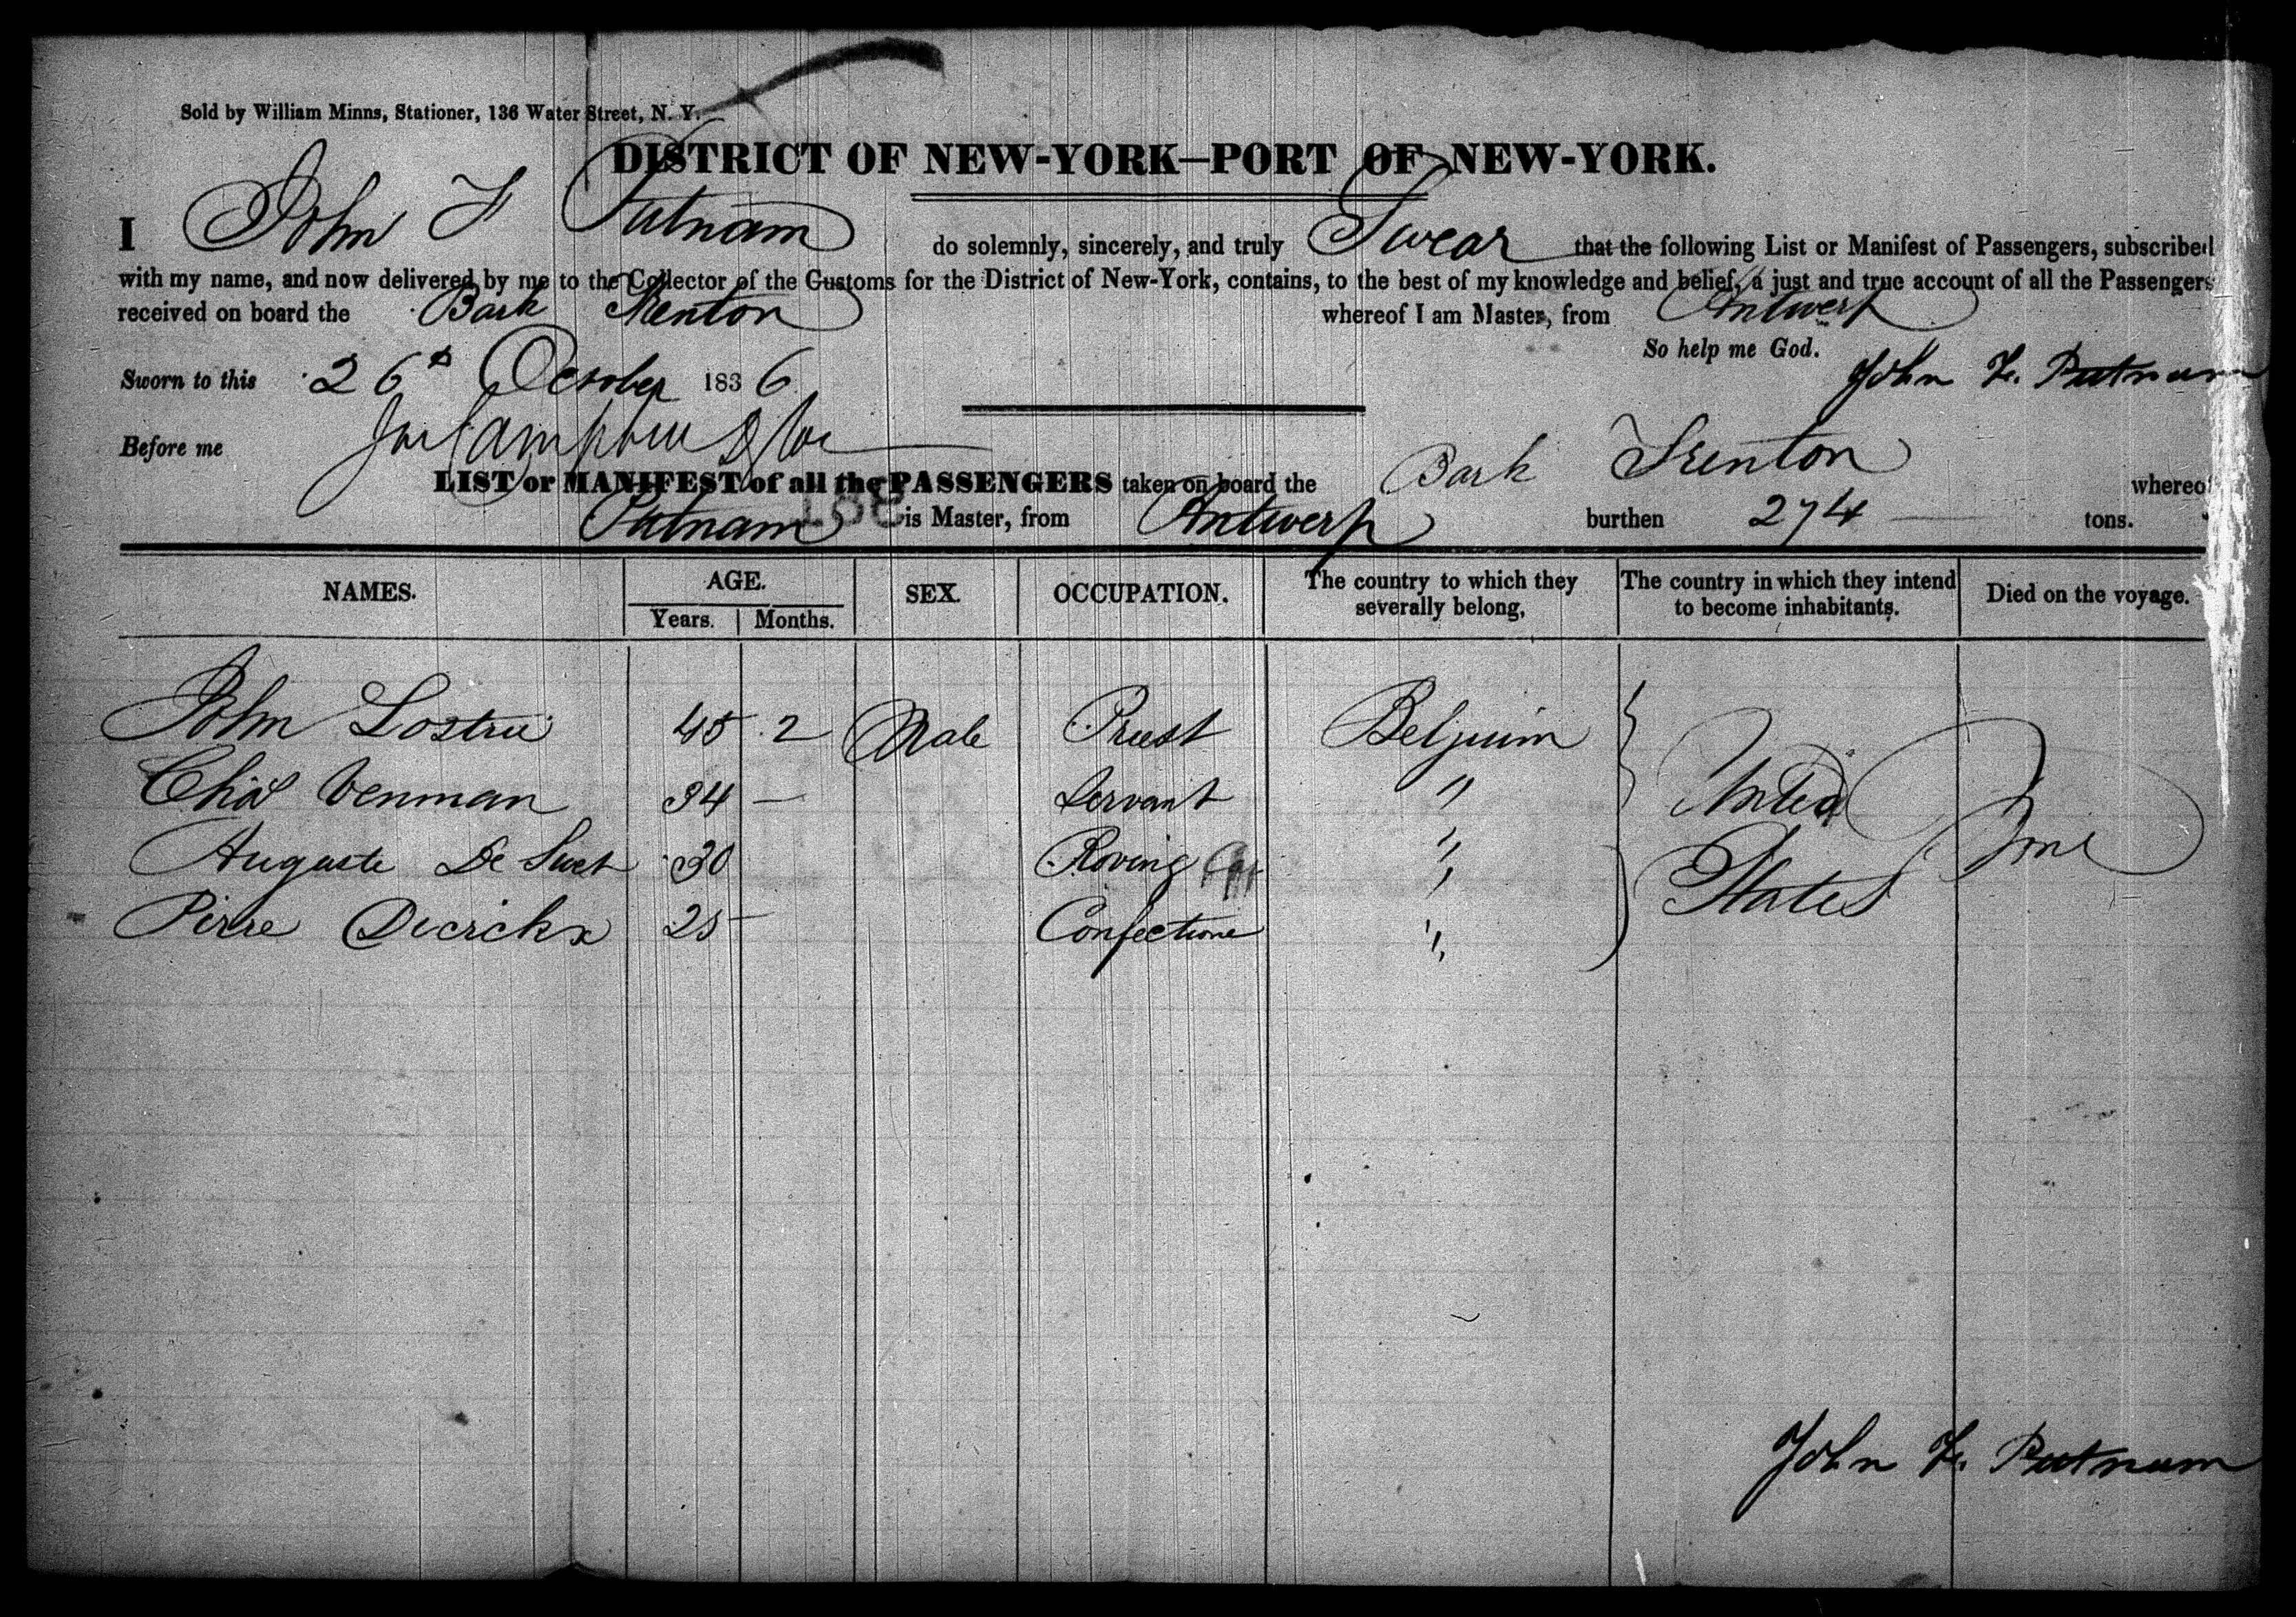 Sold by William Minns, Stationer, 136 Water Street, N. Y.
DISTRICT OF NEW-YORK—PORT OF NEW-YORK.
I John F Putnam do solemnly, sincerely, and truly Swear that the following List or Manifest of Passengers, subscribed
with my name, and now delivered by me to the Collector of the Customs for the District of New-York, contains, to the best of my knowledge and belief, a just and true account of all the Passengers
received on board the Bark Trenton whereof I am Master, from Antwerp
So help me God.
Sworn to this 26th October 1836 John F. Putnam
Before me
LIST or MANIFEST of all the PASSENGERS taken on board the Bark Trenton whereof
Putnam is Master, from Antwerp burthen 274 tons.
NAMES. AGE. SEX. OCCUPATION. The country to which they severally belong, The country in which they intend to become inhabitants. Died on the voyage.
Years. Months.
John 45 2 Male Priest Beljuim United States None
Chas Venman 34 — Servant "
Auguste De Smet 30 Roving "
Pirre Dierckx 25 — Confectione "
John F. Putnam